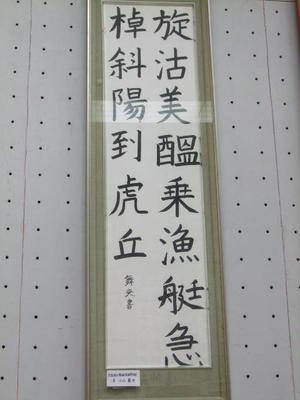 旋沽美醞乗漁艇急
棹斜陽到虎丘